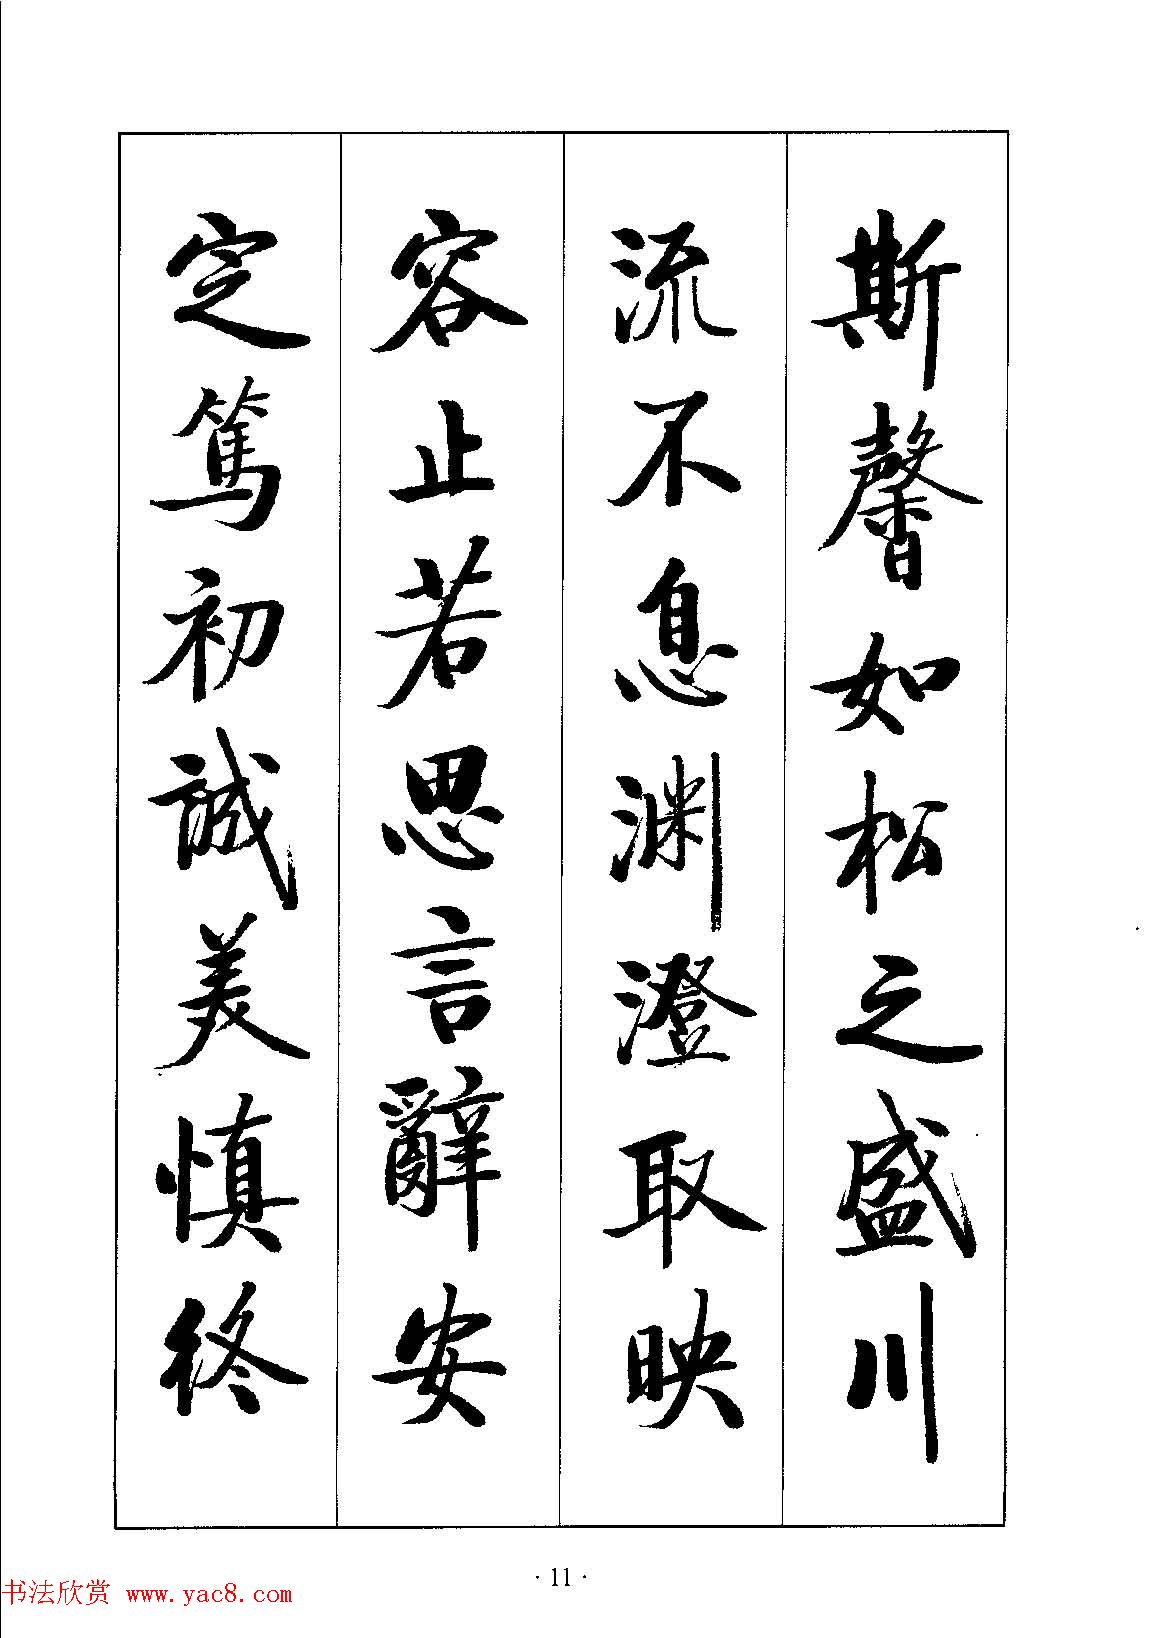 斯馨如松之盛川
流不息渊澄取映
容止若思言辭安
定篤初誠美慎终
· 11 ·
书法欣赏 www.yac8.com